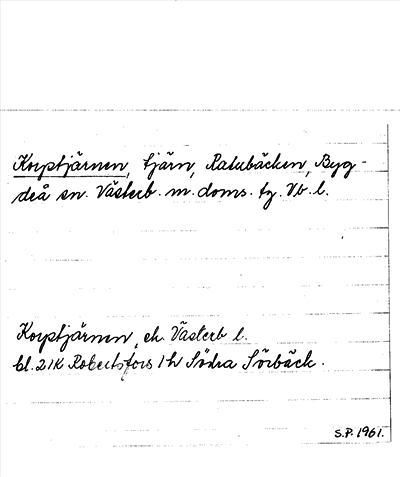 Korptjärnen, tjärn, Ratubäcken, Byg-
deå sn. Västerb. m. doms. tg. Vb. l.
Korptjärnen, ek. Västerb l.
bl. 21K Robertsfors 1 h Södra Sörbäck.
S.P. 1961.